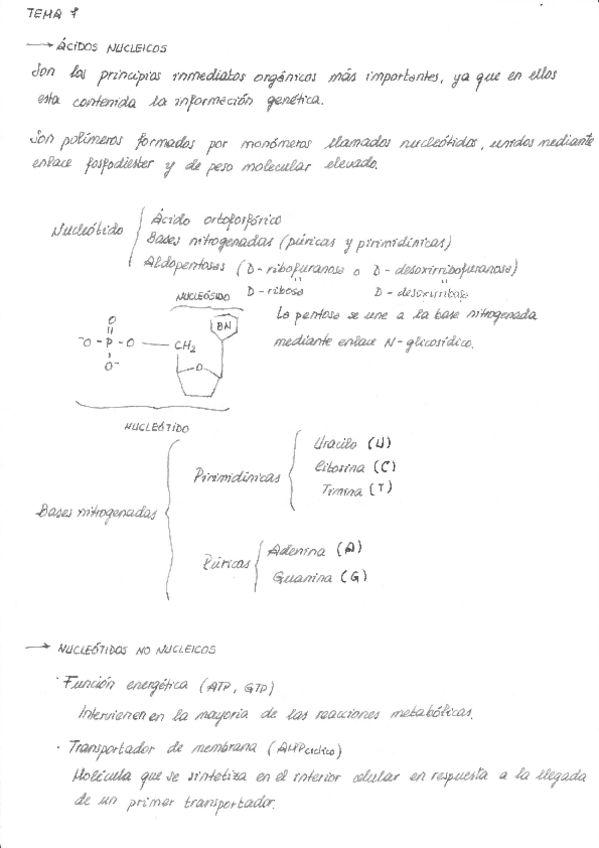 TEMA 7
→ ÁCIDOS NUCLEICOS
Son los principios inmediatos orgánicos más importantes, ya que en ellos
esta contenida la información genética.
Son polímeros formados por monómeros llamados nucleótidos, unidos mediante
enlace fosfodiester y de peso molecular elevado.
Nucleótido
Ácido ortofosfórico
Bases nitrogenadas (púricas y pirimidínicas)
Aldopentosas (D-ribofuranosa o D-desoxirribofuranosa)
D-ribosa D-desoxirribosa
NUCLEÓSIDO
La pentosa se une a la base nitrogenada
mediante enlace N-glicosídico.
BN
O
⁻O - P - O — CH₂
O⁻
O
NUCLEÓTIDO
Bases nitrogenadas
Pirimidínicas
Uracilo (U)
Citosina (C)
Timina (T)
Púricas
Adenina (A)
Guanina (G)
→ NUCLEÓTIDOS NO NUCLEICOS
· Función energética (ATP, GTP)
Intervienen en la mayoria de las reacciones metabólicas.
· Transportador de membrana (AMPcíclico)
Molécula que se sintetiza en el interior celular en respuesta a la llegada
de un primer transportador.